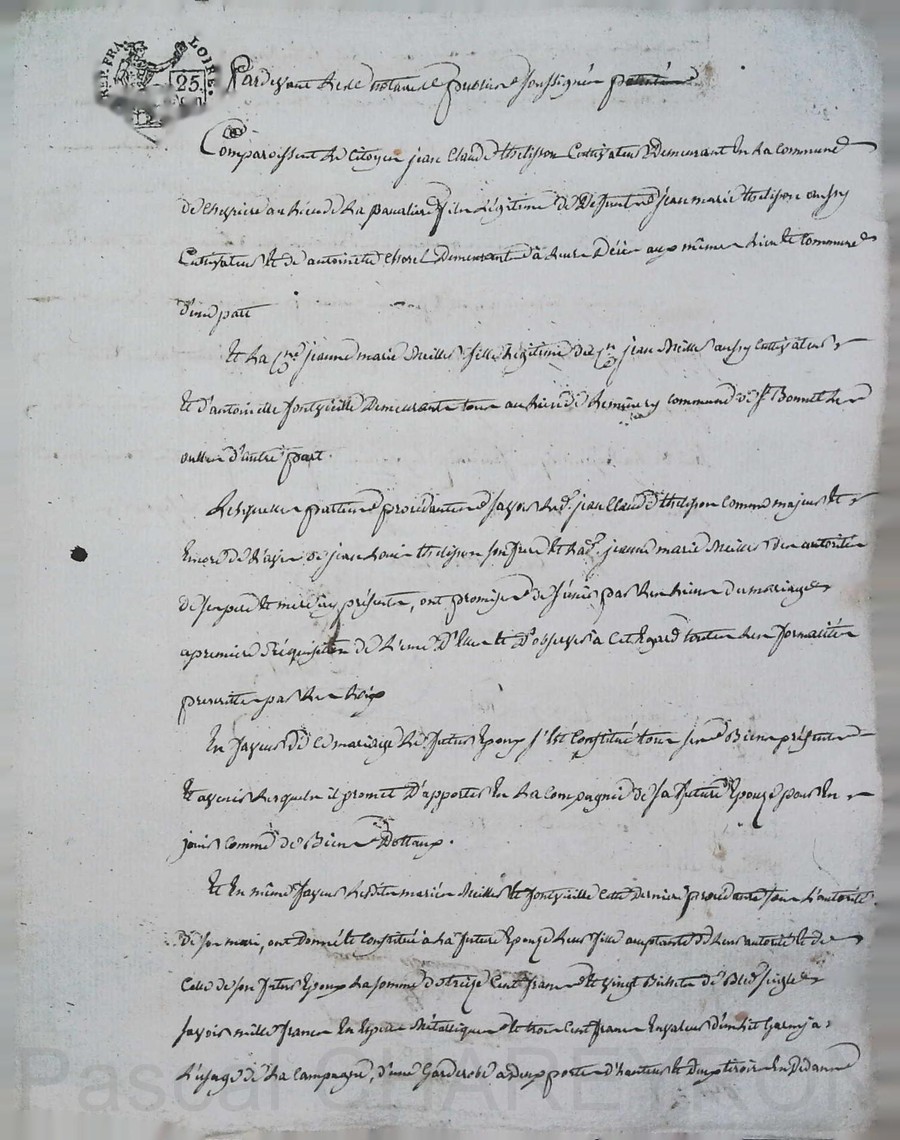 REP. FRA
LOIRE.
25
Pardevant le notaire public soussigné
Comparoissent le Citoyen jean Claude thelisson Cultivateur Demeurant En la commune
de au lieu de la fils légitime de Défunt jean marie thelisson aussy
Cultivateur Et de antoinette Demeurant à leur Décès aux même lieu Et Commune
d'une part
Et la Cne jeanne marie fille légitime du Cn jean aussy Cultivateur
Et d'antoinette fontvieille Demeurants tous au lieu de commune de St Bonnet le
d'autre part.
Lesquelles parties procédantes savoir led. jean Claude thelisson Comme majeur Et
Encore de l'avis de jean thelisson son frere Et lad. jeanne marie de l'autorité
de ses pere Et mere cy présents, ont promis de s'unir par les liens du mariage
a premiere Requisition de l'un D'Eux Et D'observer a Cet Egard toutes les formalités
prescrittes par les loix
En faveur de Ce mariage le futur Epoux s'est Constitué tous ses Biens présents
Et avenir lesquels il promet D'apporter En la Compagnie de sa future Epouze pour En
jouir Comme de Biens Dottaux.
Et En même faveur lesdits mariés Et fontvieille Cette Derniere procédante sous l'autorité
De son mari, ont donné Et Constitué a la future Epouze leur fille de leur autorité Et de
Celle de son futur Epoux la somme de treize Cent francs Et vingt de Bled seigle
savoir mille francs En Espece Métallique Et trois Cent francs En valeur d'un lit Garny a
L'usage de la Campagne, d'une Garderobe a deux portes d'hauteur Et deux tiroirs En Dedans
Pascal CHAREYRON